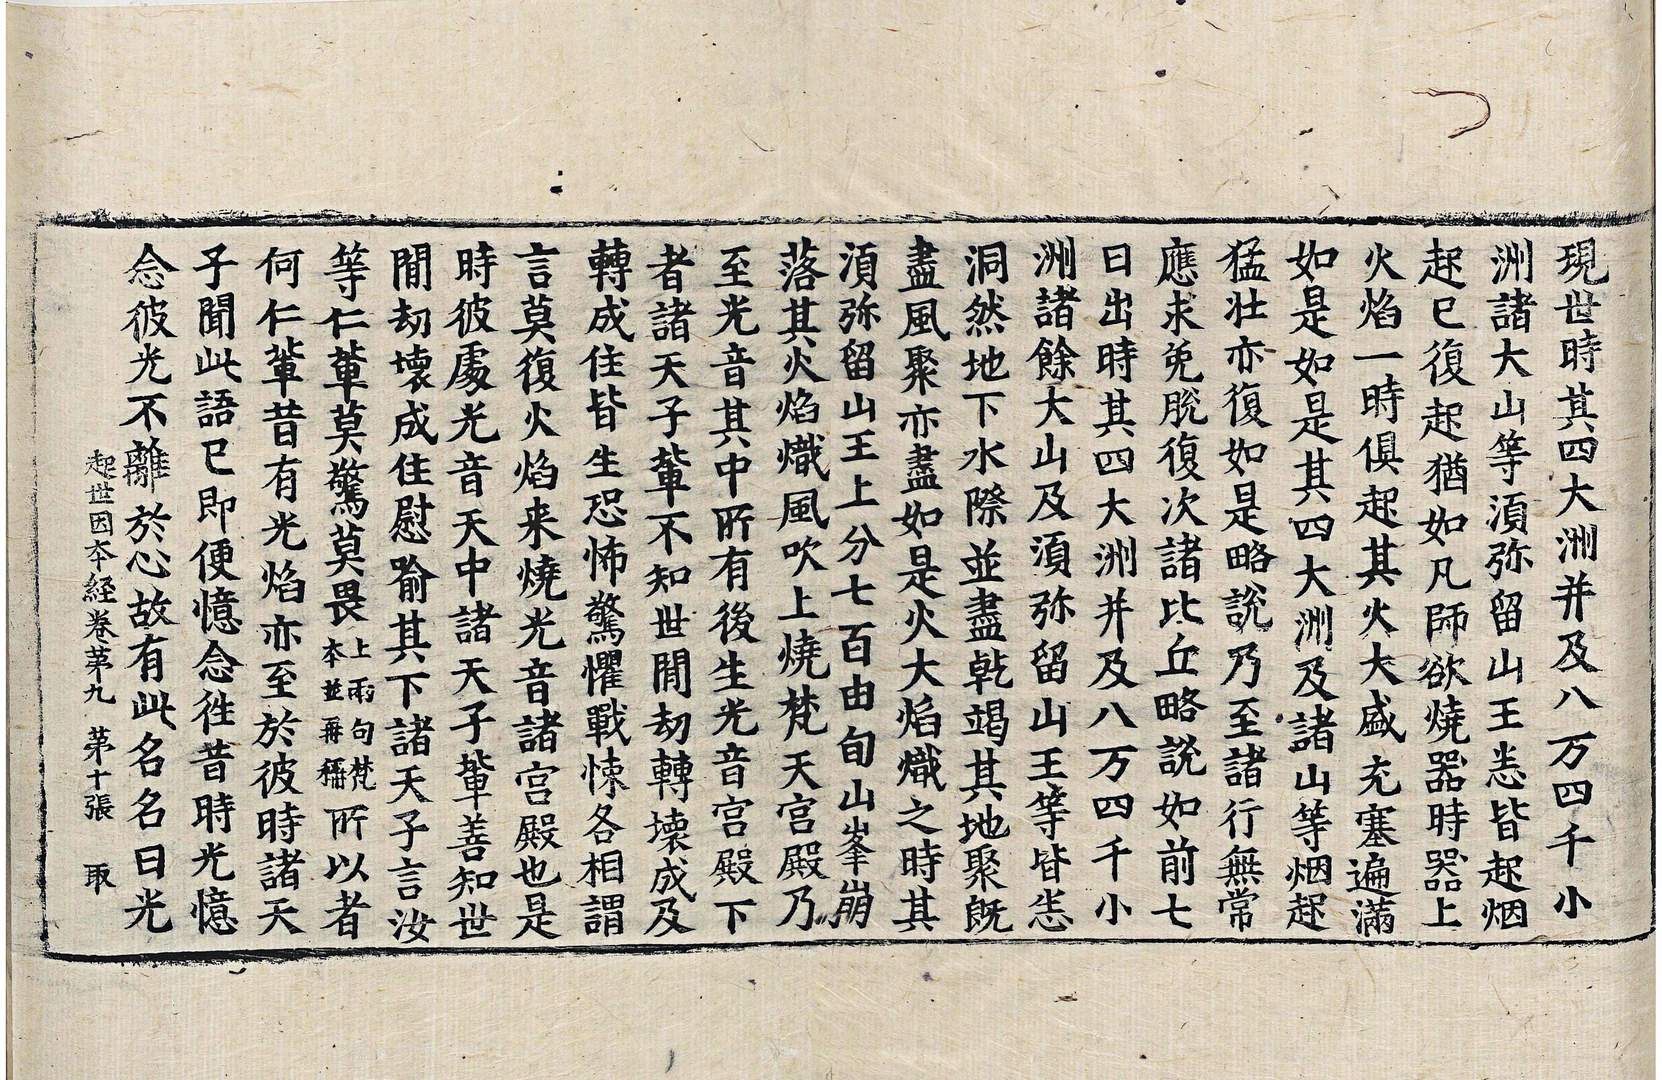 現世時其四大洲并及八万四千小
洲諸大山等湏弥留山王恙皆起烟
起已復起猶如凡師欲燒器時器上
火焰一時俱起其火大盛充塞遍滿
如是如是其四大洲及諸山等烟起
猛壮亦復如是略說乃至諸行無常
應求免脫復次諸比丘略說如前七
日出時其四大洲并及八万四千小
洲諸餘大山及湏弥留山王等皆恙
洞然地下水際並盡乾竭其地聚既
盡風聚亦盡如是火大焰熾之時其
湏弥留山王上分七百由旬山峯崩
落其火焰熾風吹上燒梵天宫殿乃
至光音其中所有後生光音宫殿下
者諸天子軰不知世間劫轉壊成及
轉成住皆生恐怖驚懼戰悚各相謂
言莫復火焰来燒光音諸宫殿也是
時彼處光音天中諸天子軰善知世
間劫壊成住慰喻其下諸天子言汝
等仁軰莫驚莫畏上兩句梵本並再稱所以者
何仁軰昔有光焰亦至於彼時諸天
子聞此語已即便憶念徃昔時光憶
念彼光不離於心故有此名名曰光
起世因本經卷第九 第十張 取